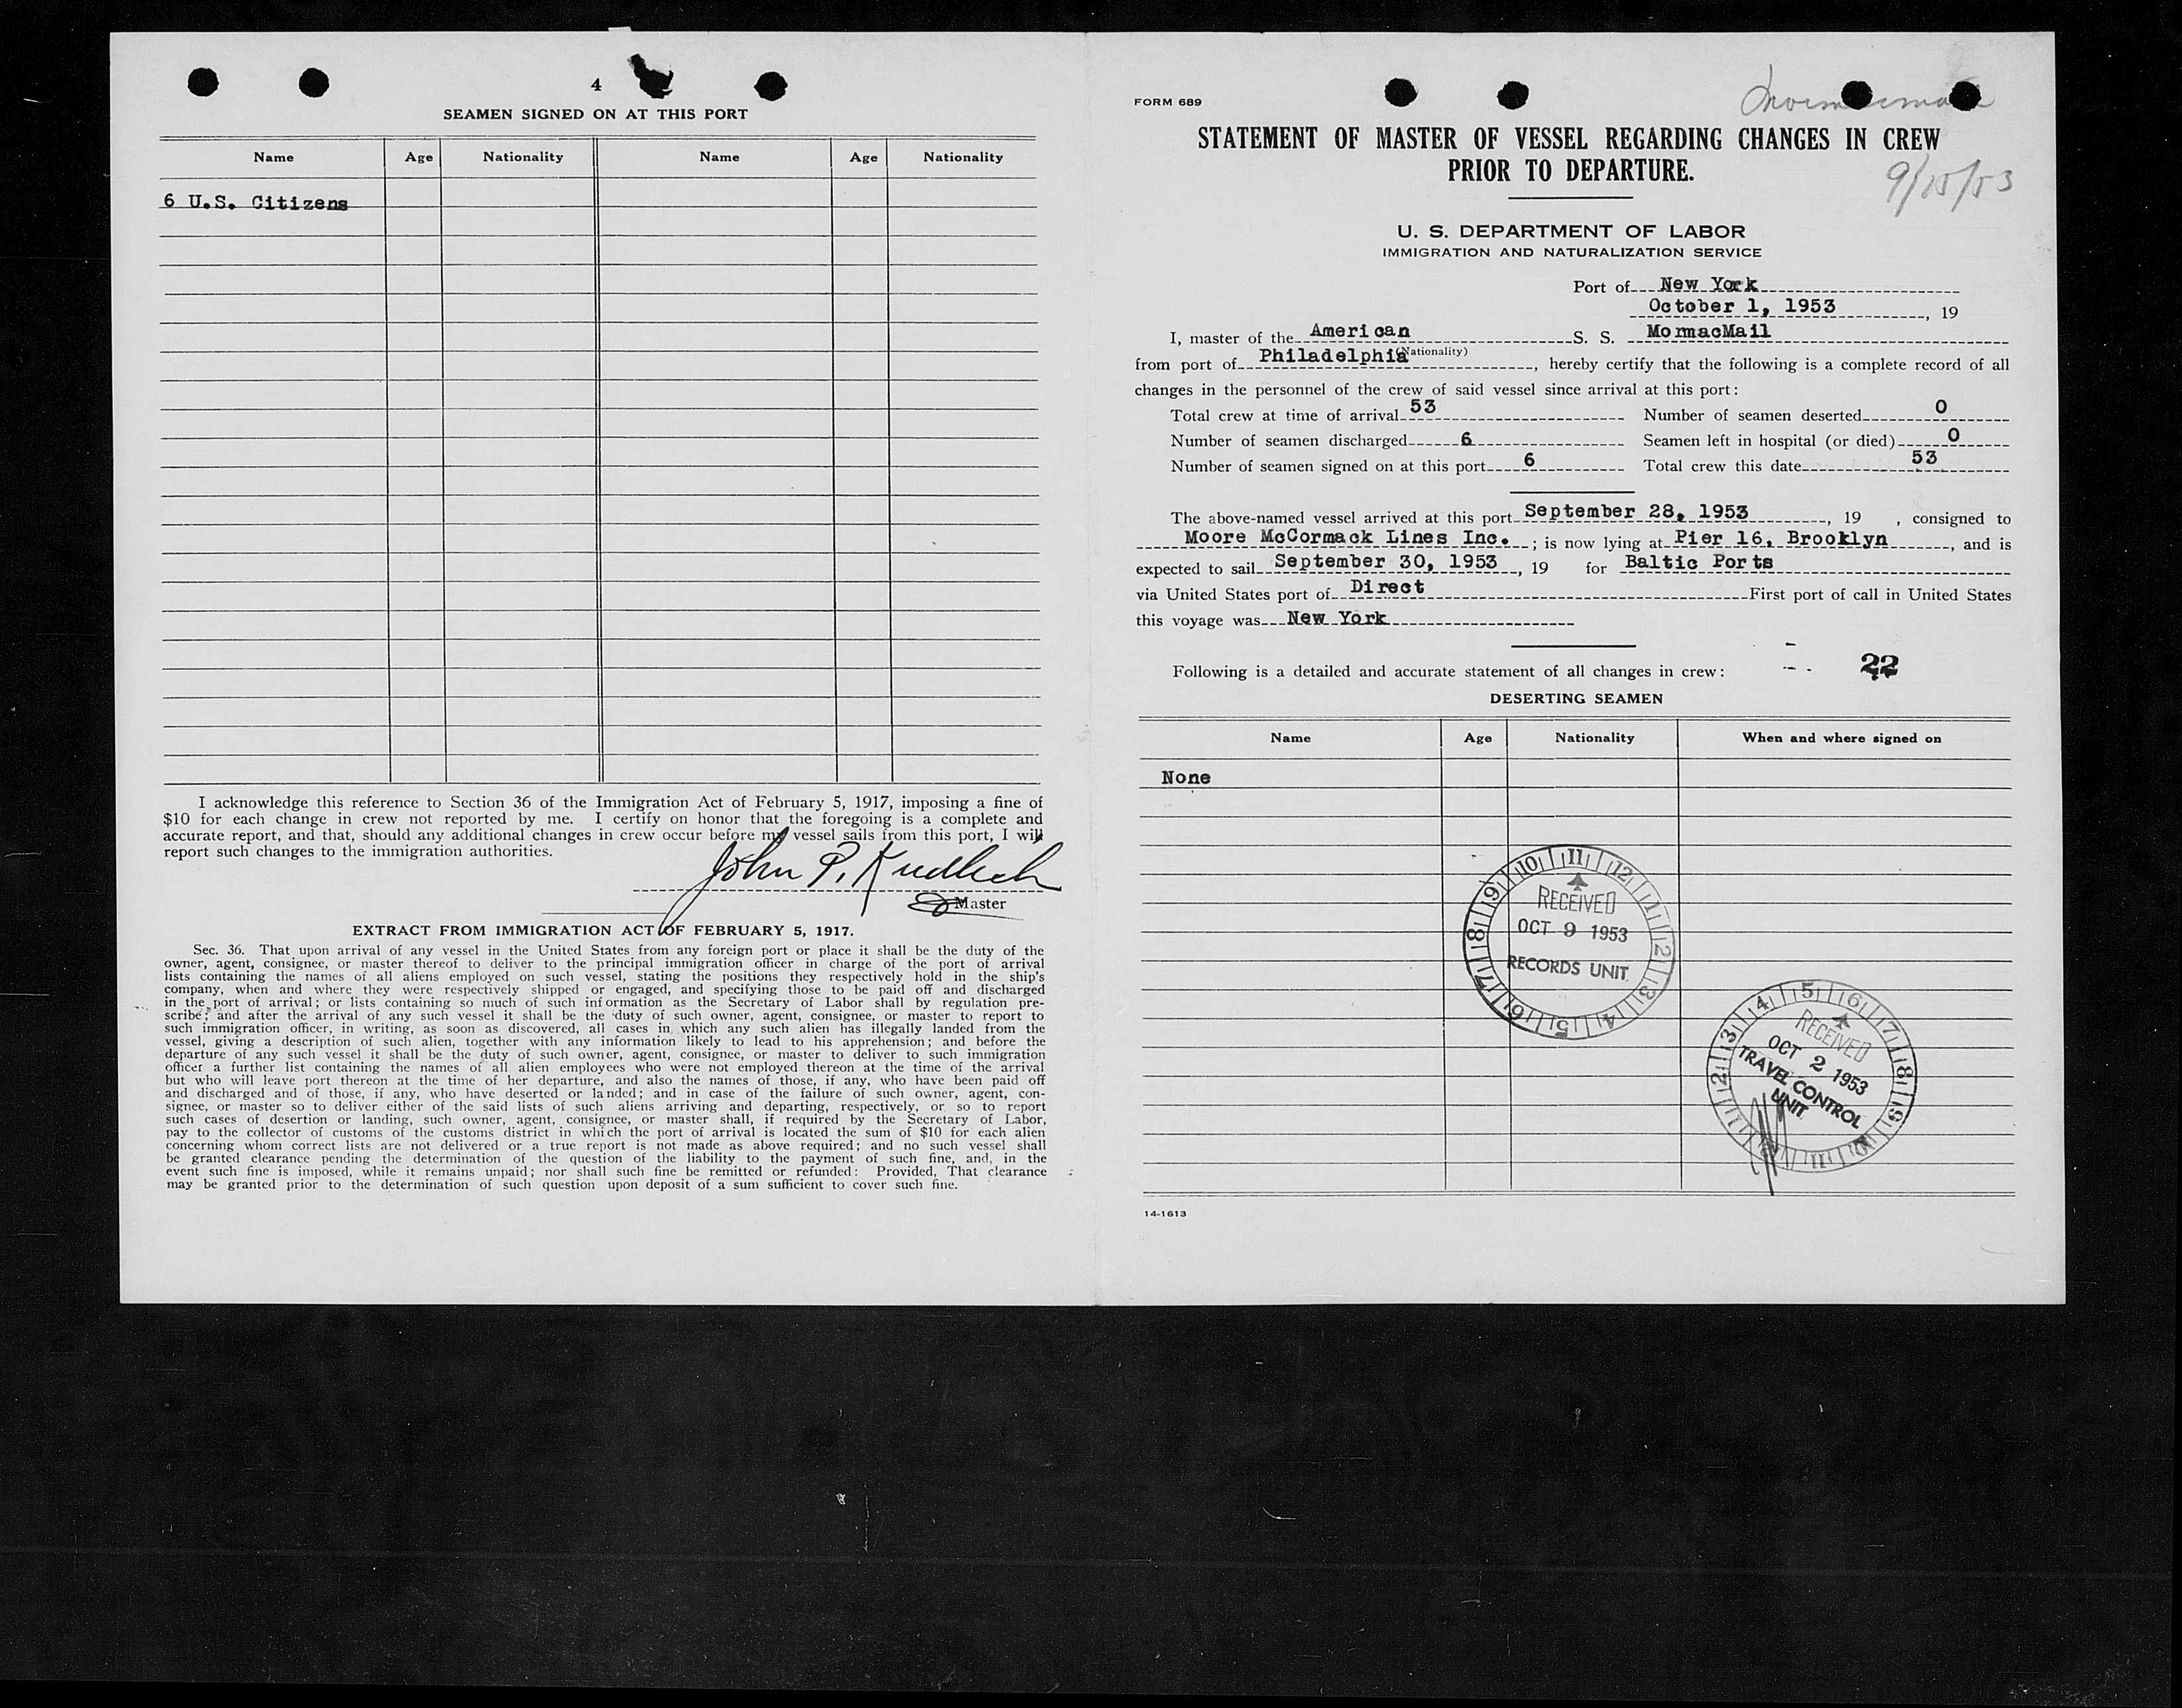 4
SEAMEN SIGNED ON AT THIS PORT
Name Age Nationality Name Age Nationality
6 U.S. Citizens
I acknowledge this reference to Section 36 of the Immigration Act of February 5, 1917, imposing a fine of
$10 for each change in crew not reported by me. I certify on honor that the foregoing is a complete and
accurate report, and that, should any additional changes in crew occur before my vessel sails from this port, I will
report such changes to the immigration authorities.
John P. Kudlich
Master
EXTRACT FROM IMMIGRATION ACT OF FEBRUARY 5, 1917.
Sec. 36. That upon arrival of any vessel in the United States from any foreign port or place it shall be the duty of the
owner, agent, consignee, or master thereof to deliver to the principal immigration officer in charge of the port of arrival
lists containing the names of all aliens employed on such vessel, stating the positions they respectively hold in the ship's
company, when and where they were respectively shipped or engaged, and specifying those to be paid off and discharged
in the port of arrival; or lists containing so much of such information as the Secretary of Labor shall by regulation pre-
scribe; and after the arrival of any such vessel it shall be the duty of such owner, agent, consignee, or master to report to
such immigration officer, in writing, as soon as discovered, all cases in which any such alien has illegally landed from the
vessel, giving a description of such alien, together with any information likely to lead to his apprehension; and before the
departure of any such vessel it shall be the duty of such owner, agent, consignee, or master to deliver to such immigration
officer a further list containing the names of all alien employees who were not employed thereon at the time of the arrival
but who will leave port thereon at the time of her departure, and also the names of those, if any, who have been paid off
and discharged and of those, if any, who have deserted or landed; and in case of the failure of such owner, agent, con-
signee, or master so to deliver either of the said lists of such aliens arriving and departing, respectively, or so to report
such cases of desertion or landing, such owner, agent, consignee, or master shall, if required by the Secretary of Labor,
pay to the collector of customs of the customs district in which the port of arrival is located the sum of $10 for each alien
concerning whom correct lists are not delivered or a true report is not made as above required; and no such vessel shall
be granted clearance pending the determination of the question of the liability to the payment of such fine, and, in the
event such fine is imposed, while it remains unpaid; nor shall such fine be remitted or refunded: Provided, That clearance
may be granted prior to the determination of such question upon deposit of a sum sufficient to cover such fine.
FORM 689
STATEMENT OF MASTER OF VESSEL REGARDING CHANGES IN CREW
PRIOR TO DEPARTURE.
9/15/53
U. S. DEPARTMENT OF LABOR
IMMIGRATION AND NATURALIZATION SERVICE
Port of New York
October 1, 1953, 19
I, master of the American S. S. MormacMail
(Nationality)
from port of Philadelphia, hereby certify that the following is a complete record of all
changes in the personnel of the crew of said vessel since arrival at this port:
Total crew at time of arrival 53 Number of seamen deserted 0
Number of seamen discharged 6 Seamen left in hospital (or died) 0
Number of seamen signed on at this port 6 Total crew this date 53
The above-named vessel arrived at this port September 28, 1953, 19 , consigned to
Moore McCormack Lines Inc.; is now lying at Pier 16, Brooklyn, and is
expected to sail September 30, 1953, 19 for Baltic Ports
via United States port of Direct First port of call in United States
this voyage was New York
Following is a detailed and accurate statement of all changes in crew: 22
DESERTING SEAMEN
Name Age Nationality When and where signed on
None
10 11 12 1 2 3 4 5 6 7 8 9
RECEIVED
OCT 9 1953
RECORDS UNIT
4 5 6 7 8 9 10 11 2 3
RECEIVED
OCT 2 1953
TRAVEL CONTROL
UNIT
14-1613